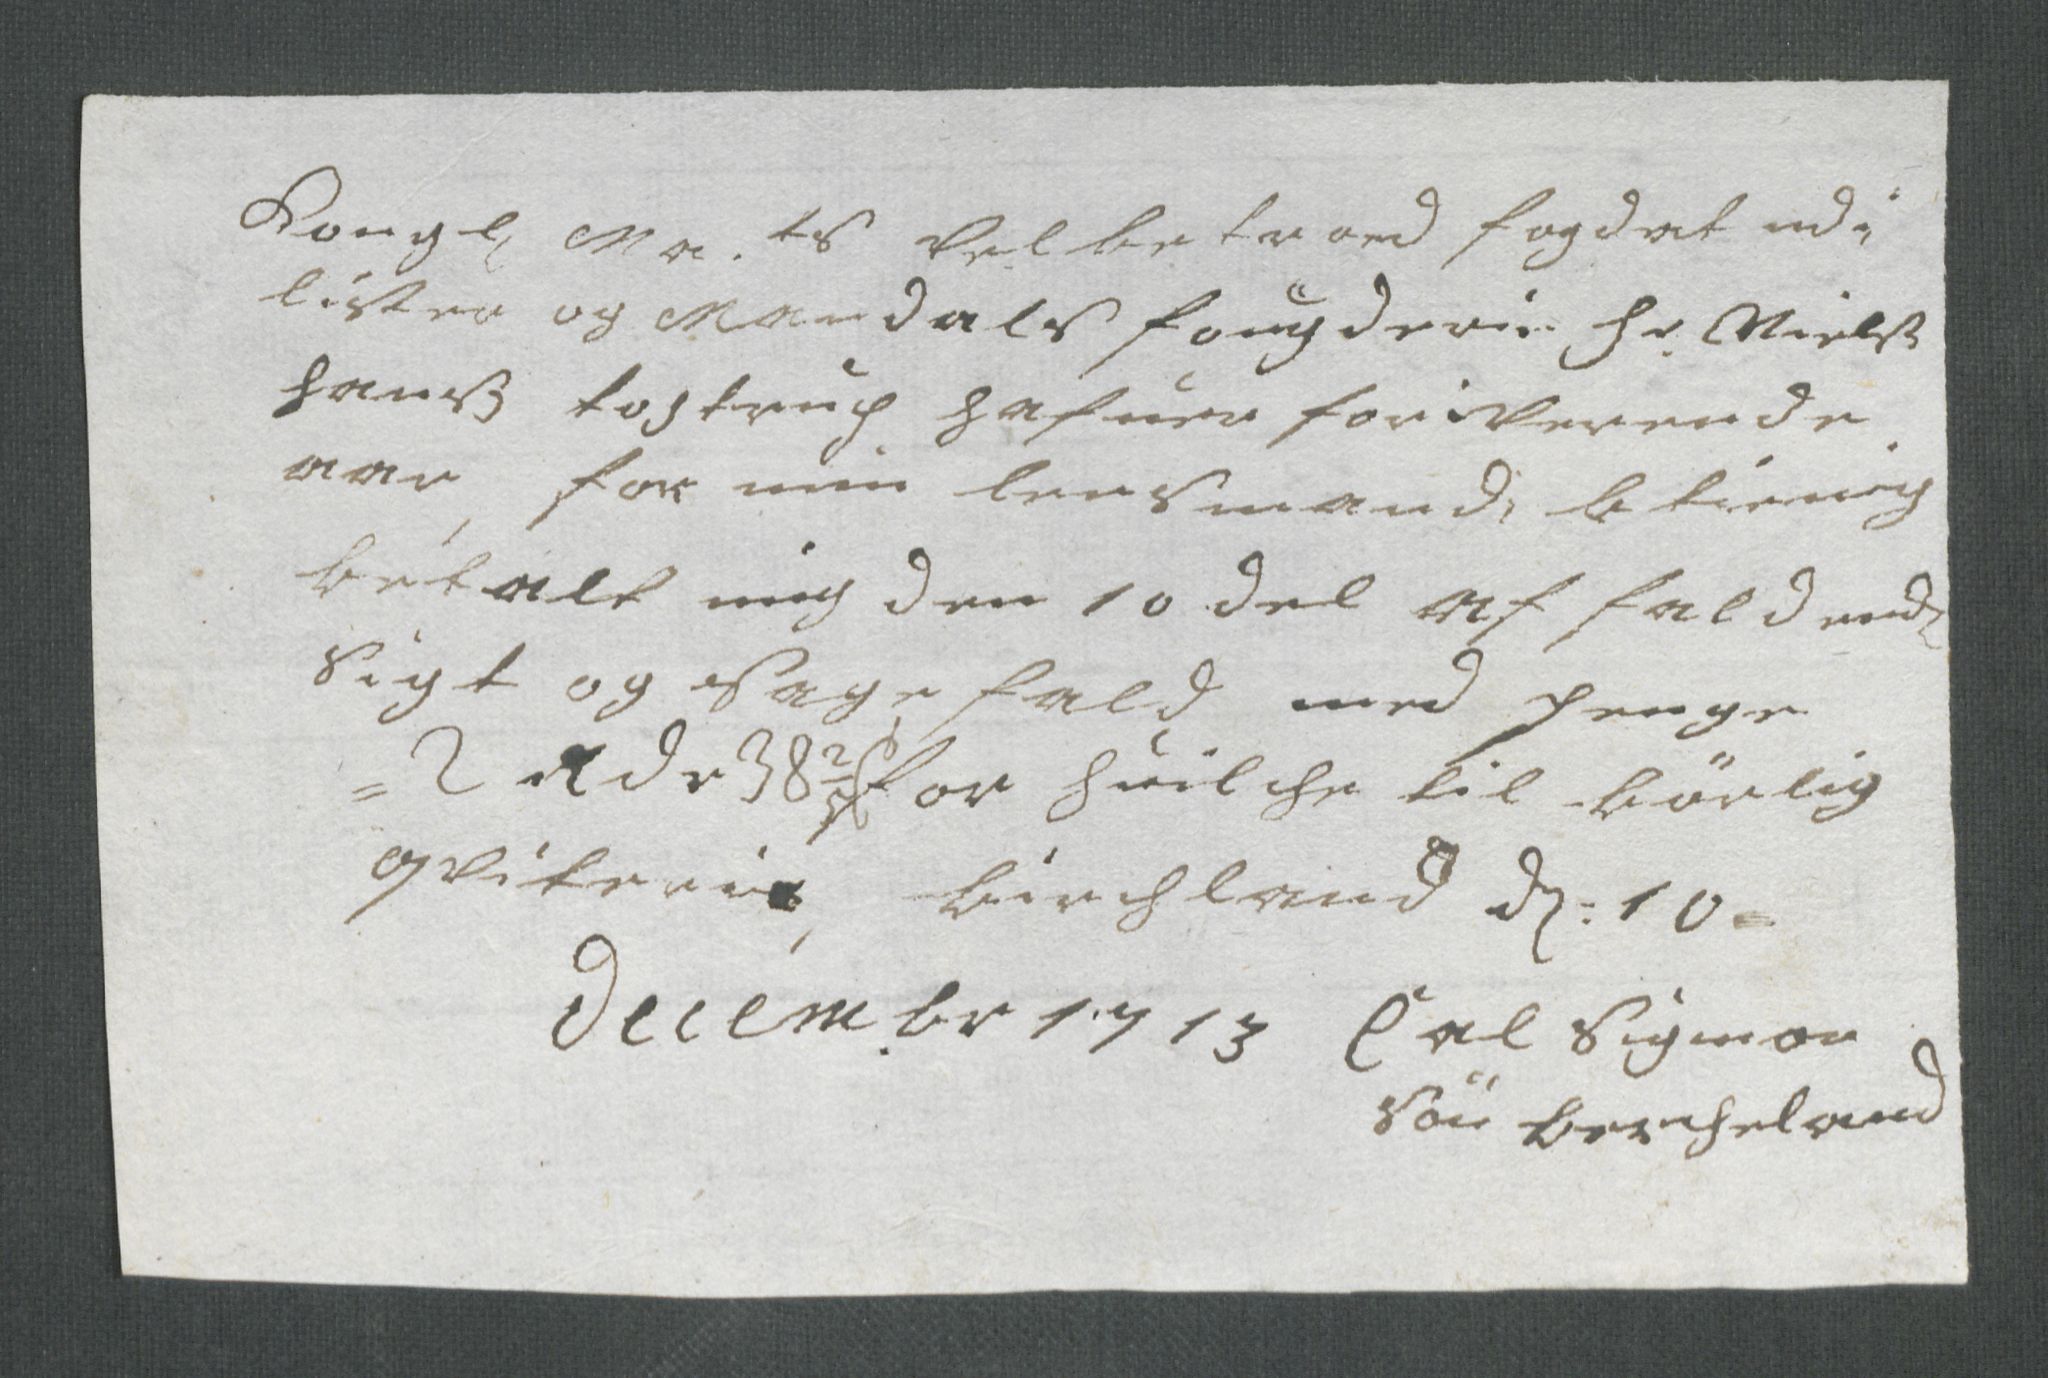 Kongl Ma.ts velbetroed fogdet udi
lister og Mandals fougderie hr. Nielss
hanss tostrup hafuer foriverende
aar for min lensmandz btiening
betalt mig den 10 del af faldende
sigt og sagefald med penge
= 2 Rdr 38 2/5 s for huilche til börlig
qviterie, birchland d: 10 =
December 1713 Cal Sigmon
sön bercheland